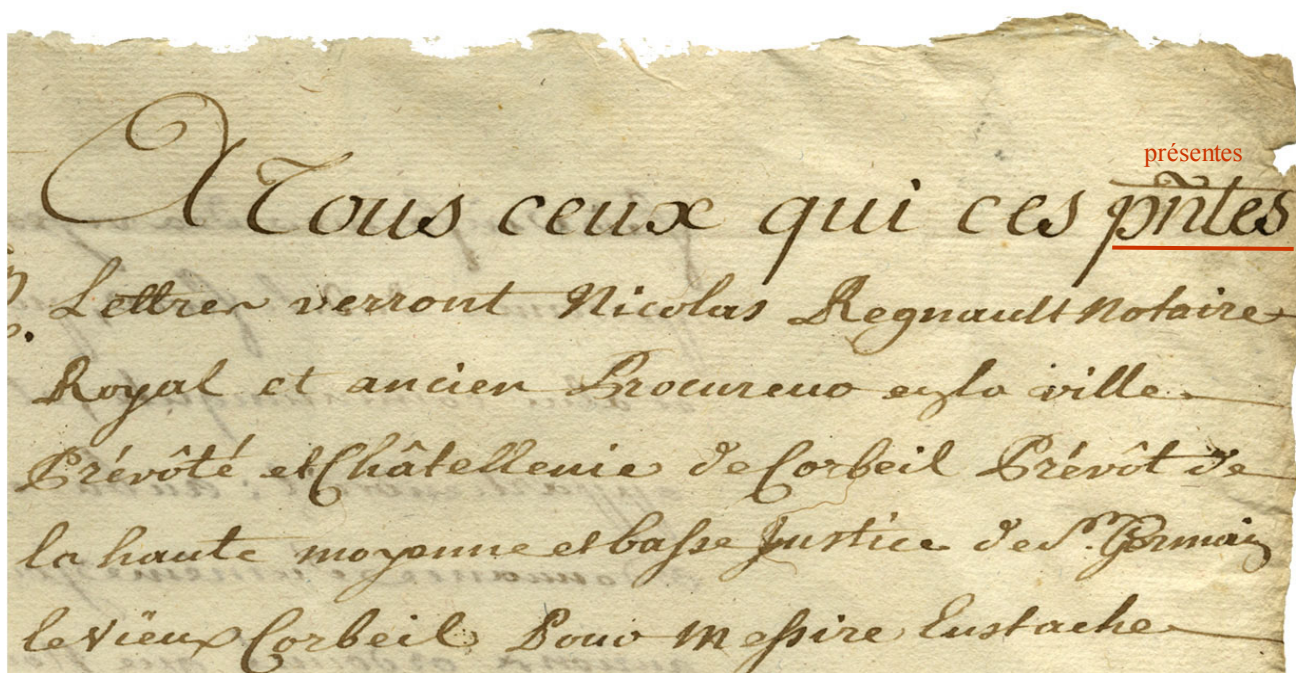 présentes
A Tous ceux qui ces pñtes
Lettres verront Nicolas Regnault Notaire
Royal et ancien Procureur en la ville
Prévôté et Châtellenie de Corbeil Prévôt de
la haute moyenne et basse Justice de St. Germain
le vieux Corbeil Pour Messire Eustache